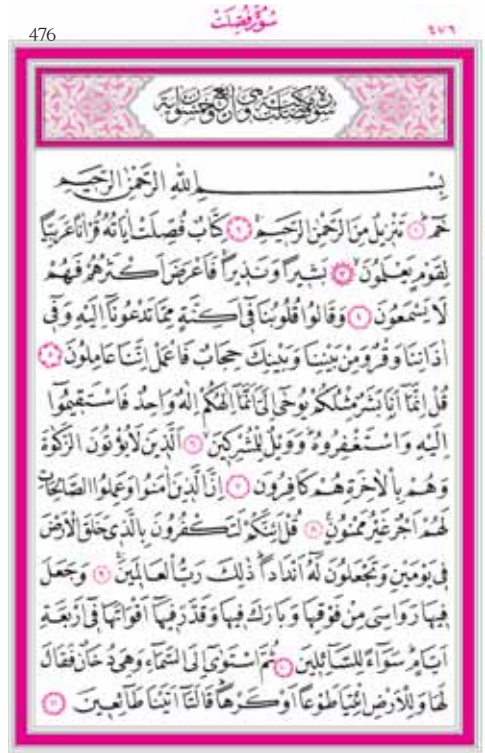 سُورَةُ فُصِّلَتْ
476 ٤٧٦
سُورَةُ فُصِّلَتْ مَكِّيَّةٌ وَهِيَ أَرْبَعٌ وَخَمْسُونَ آيَةً
بِسْمِ اللهِ الرَّحْمٰنِ الرَّحِيمِ
حٰمٓ ﴿١﴾ تَنْزِيلٌ مِنَ الرَّحْمٰنِ الرَّحِيمِ ﴿٢﴾ كِتَابٌ فُصِّلَتْ اٰيَاتُهُ قُرْاٰنًا عَرَبِيًّا
لِقَوْمٍ يَعْلَمُونَ ﴿٣﴾ بَشِيرًا وَنَذِيرًا فَاَعْرَضَ اَكْثَرُهُمْ فَهُمْ
لَا يَسْمَعُونَ ﴿٤﴾ وَقَالُوا قُلُوبُنَا فِي اَكِنَّةٍ مِمَّا تَدْعُونَا اِلَيْهِ وَفِي
اٰذَانِنَا وَقْرٌ وَمِنْ بَيْنِنَا وَبَيْنِكَ حِجَابٌ فَاعْمَلْ اِنَّنَا عَامِلُونَ ﴿٥﴾
قُلْ اِنَّمَا اَنَا بَشَرٌ مِثْلُكُمْ يُوحٰى اِلَيَّ اَنَّمَا اِلٰهُكُمْ اِلٰهٌ وَاحِدٌ فَاسْتَقِيمُوا
اِلَيْهِ وَاسْتَغْفِرُوهُ وَوَيْلٌ لِلْمُشْرِكِينَ ﴿٦﴾ اَلَّذِينَ لَا يُؤْتُونَ الزَّكٰوةَ
وَهُمْ بِالْاٰخِرَةِ هُمْ كَافِرُونَ ﴿٧﴾ اِنَّ الَّذِينَ اٰمَنُوا وَعَمِلُوا الصَّالِحَاتِ
لَهُمْ اَجْرٌ غَيْرُ مَمْنُونٍ ﴿٨﴾ قُلْ اَئِنَّكُمْ لَتَكْفُرُونَ بِالَّذِي خَلَقَ الْاَرْضَ
فِي يَوْمَيْنِ وَتَجْعَلُونَ لَهُ اَنْدَادًا ذٰلِكَ رَبُّ الْعَالَمِينَ ﴿٩﴾ وَجَعَلَ
فِيهَا رَوَاسِيَ مِنْ فَوْقِهَا وَبَارَكَ فِيهَا وَقَدَّرَ فِيهَا اَقْوَاتَهَا فِي اَرْبَعَةِ
اَيَّامٍ سَوَاءً لِلسَّائِلِينَ ﴿١٠﴾ ثُمَّ اسْتَوٰى اِلَى السَّمَاءِ وَهِيَ دُخَانٌ فَقَالَ
لَهَا وَلِلْاَرْضِ ائْتِيَا طَوْعًا اَوْ كَرْهًا قَالَتَا اَتَيْنَا طَائِعِينَ ﴿١١﴾